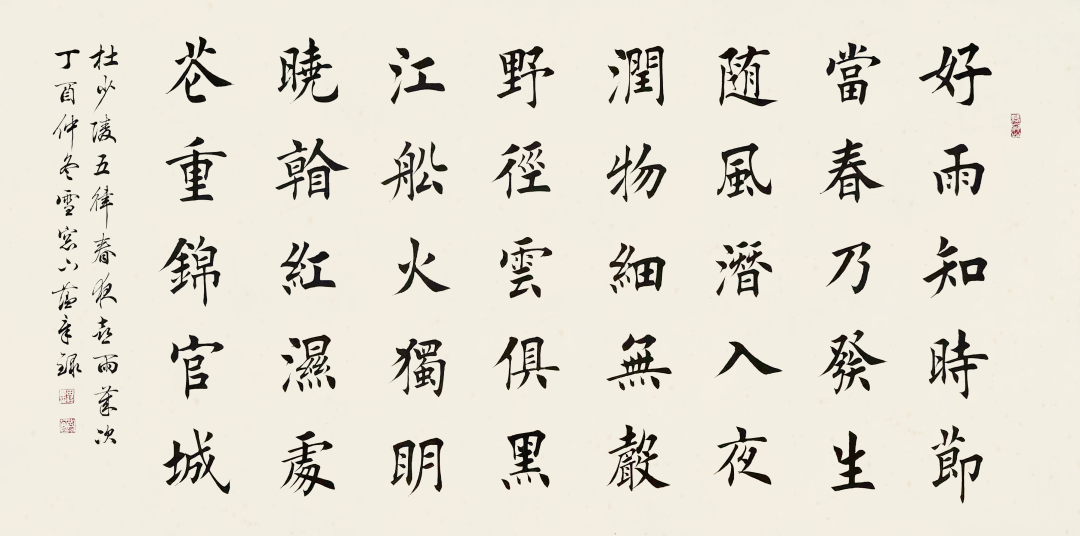 好雨知時節
當春乃發生
随風潛入夜
潤物細無聲
野徑雲俱黑
江舩火獨眀
曉看紅濕處
花重錦官城
杜少陵五律春夜喜雨
丁酉仲冬雪窓下 錄